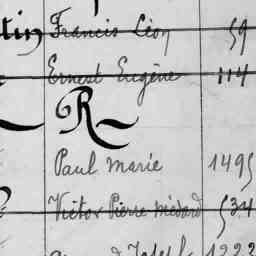 tin Francis Léon 59
Ernest Eugène 114
R
Paul Marie 1495
Victor Pierre Médard 534
Joseph 1222